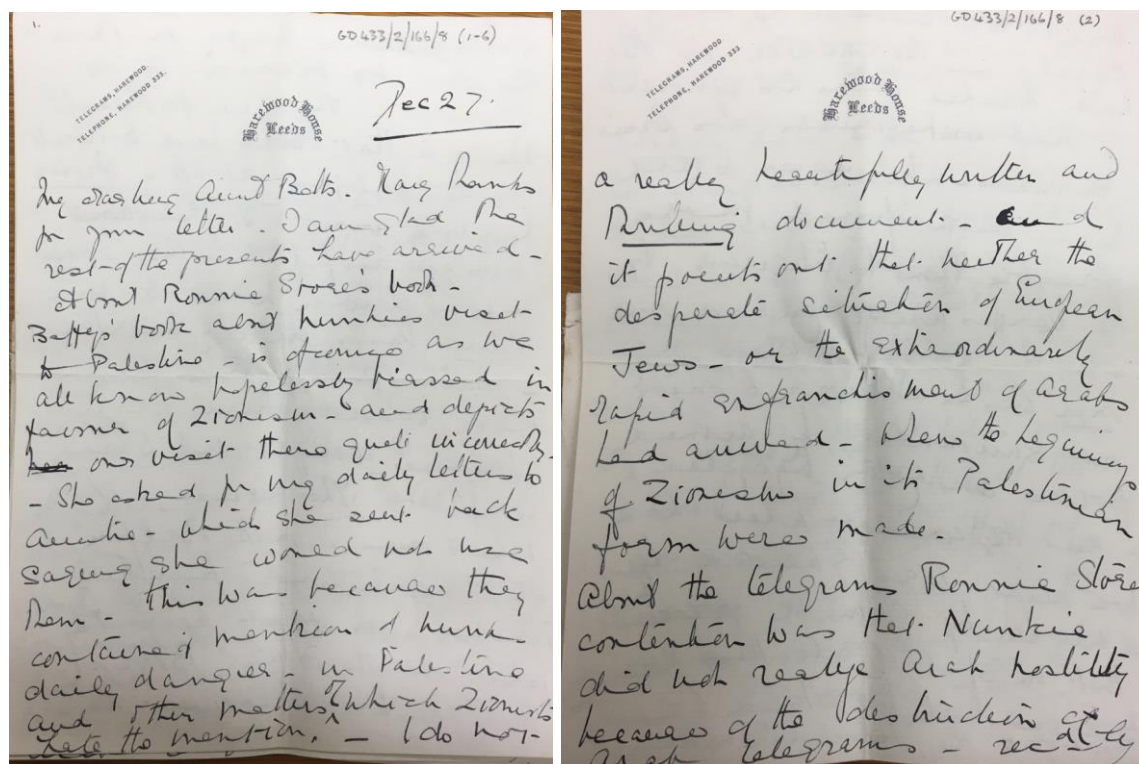 1.
GD433/2/166/8 (1-6)
TELEGRAMS, HAREWOOD.
TELEPHONE, HAREWOOD 333.
Harewood House
Leeds
Dec 27.
My Aunt Betts. Many thanks
for your letter. I am glad the
rest of the presents have arrived -
About Ronnie Storrs's book -
Baffy's book about Nunkies visit
to Palestine - is of course as we
all know hopelessly biassed in
favour of Zionism - and depicts
our visit there quite incorrectly -
- She asked for my daily letters to
Auntie - which she sent back
saying she would not use
them - this was because they
contained mention of
daily danger - in Palestine
and other matters of which Zionists
hate the mention. - I do not
GD433/2/166/8 (2)
TELEGRAMS, HAREWOOD.
TELEPHONE, HAREWOOD 333.
Harewood House
Leeds
a really beautifully written and
document - and
it points out that neither the
desperate situation of European
Jews - or the extraordinarily
rapid enfranchisment of Arabs
had arrived - when the beginnings
of Zionism in its Palestinian
form were made.
About the telegrams Ronnie Storrs
contention was that Nunkie
did not realize Arab hostility
because of the destruction of
Arab telegrams -